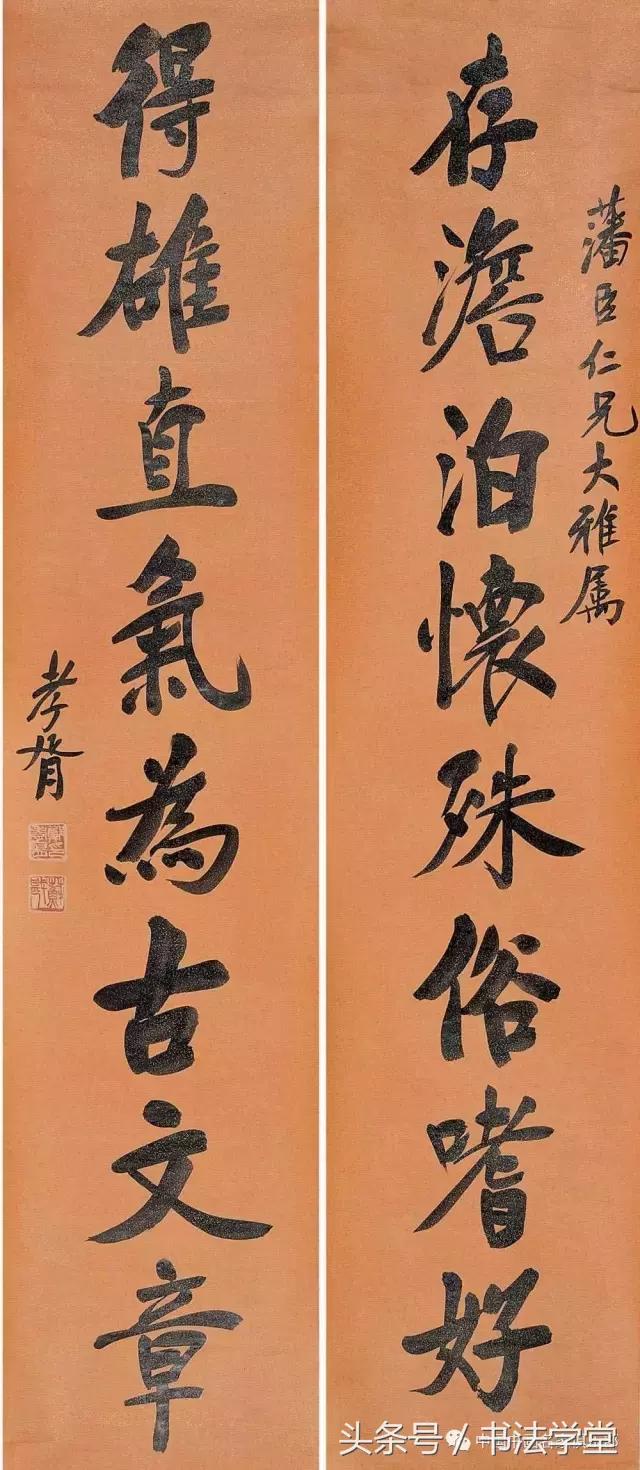 藩臣仁兄大雅属
存澹泊懷殊俗嗜好
得雄直氣為古文章
孝胥
头条号/书法学堂